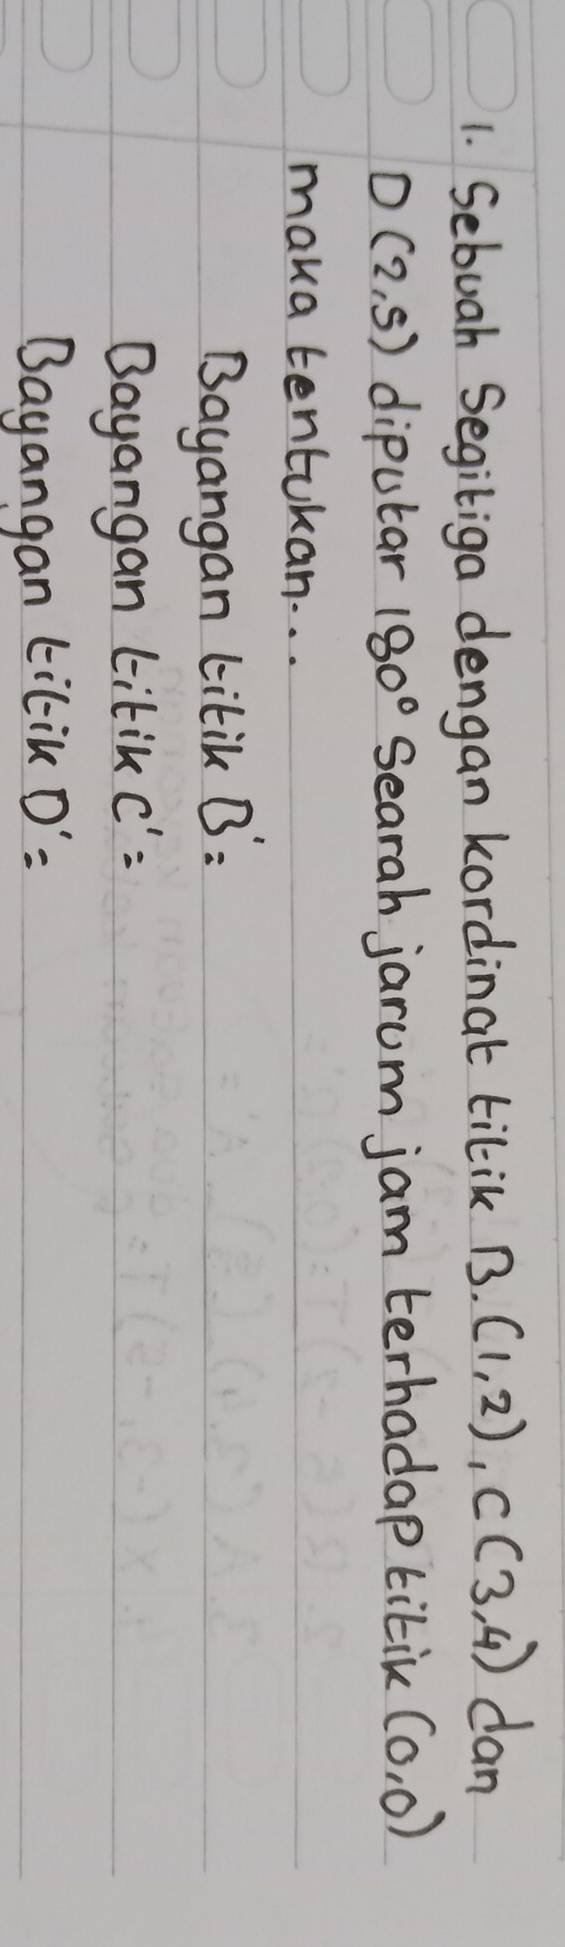 1. Sebuah Segitiga dengan kordinat titik B.(1,2), C(3,4) dan
D(2,5) diputar 180° Searah jarum jam terhadap titik (0,0)
maka tentukan...
Bayangan titik B'=
Bayangan titik C'=
Bayangan titik D'=